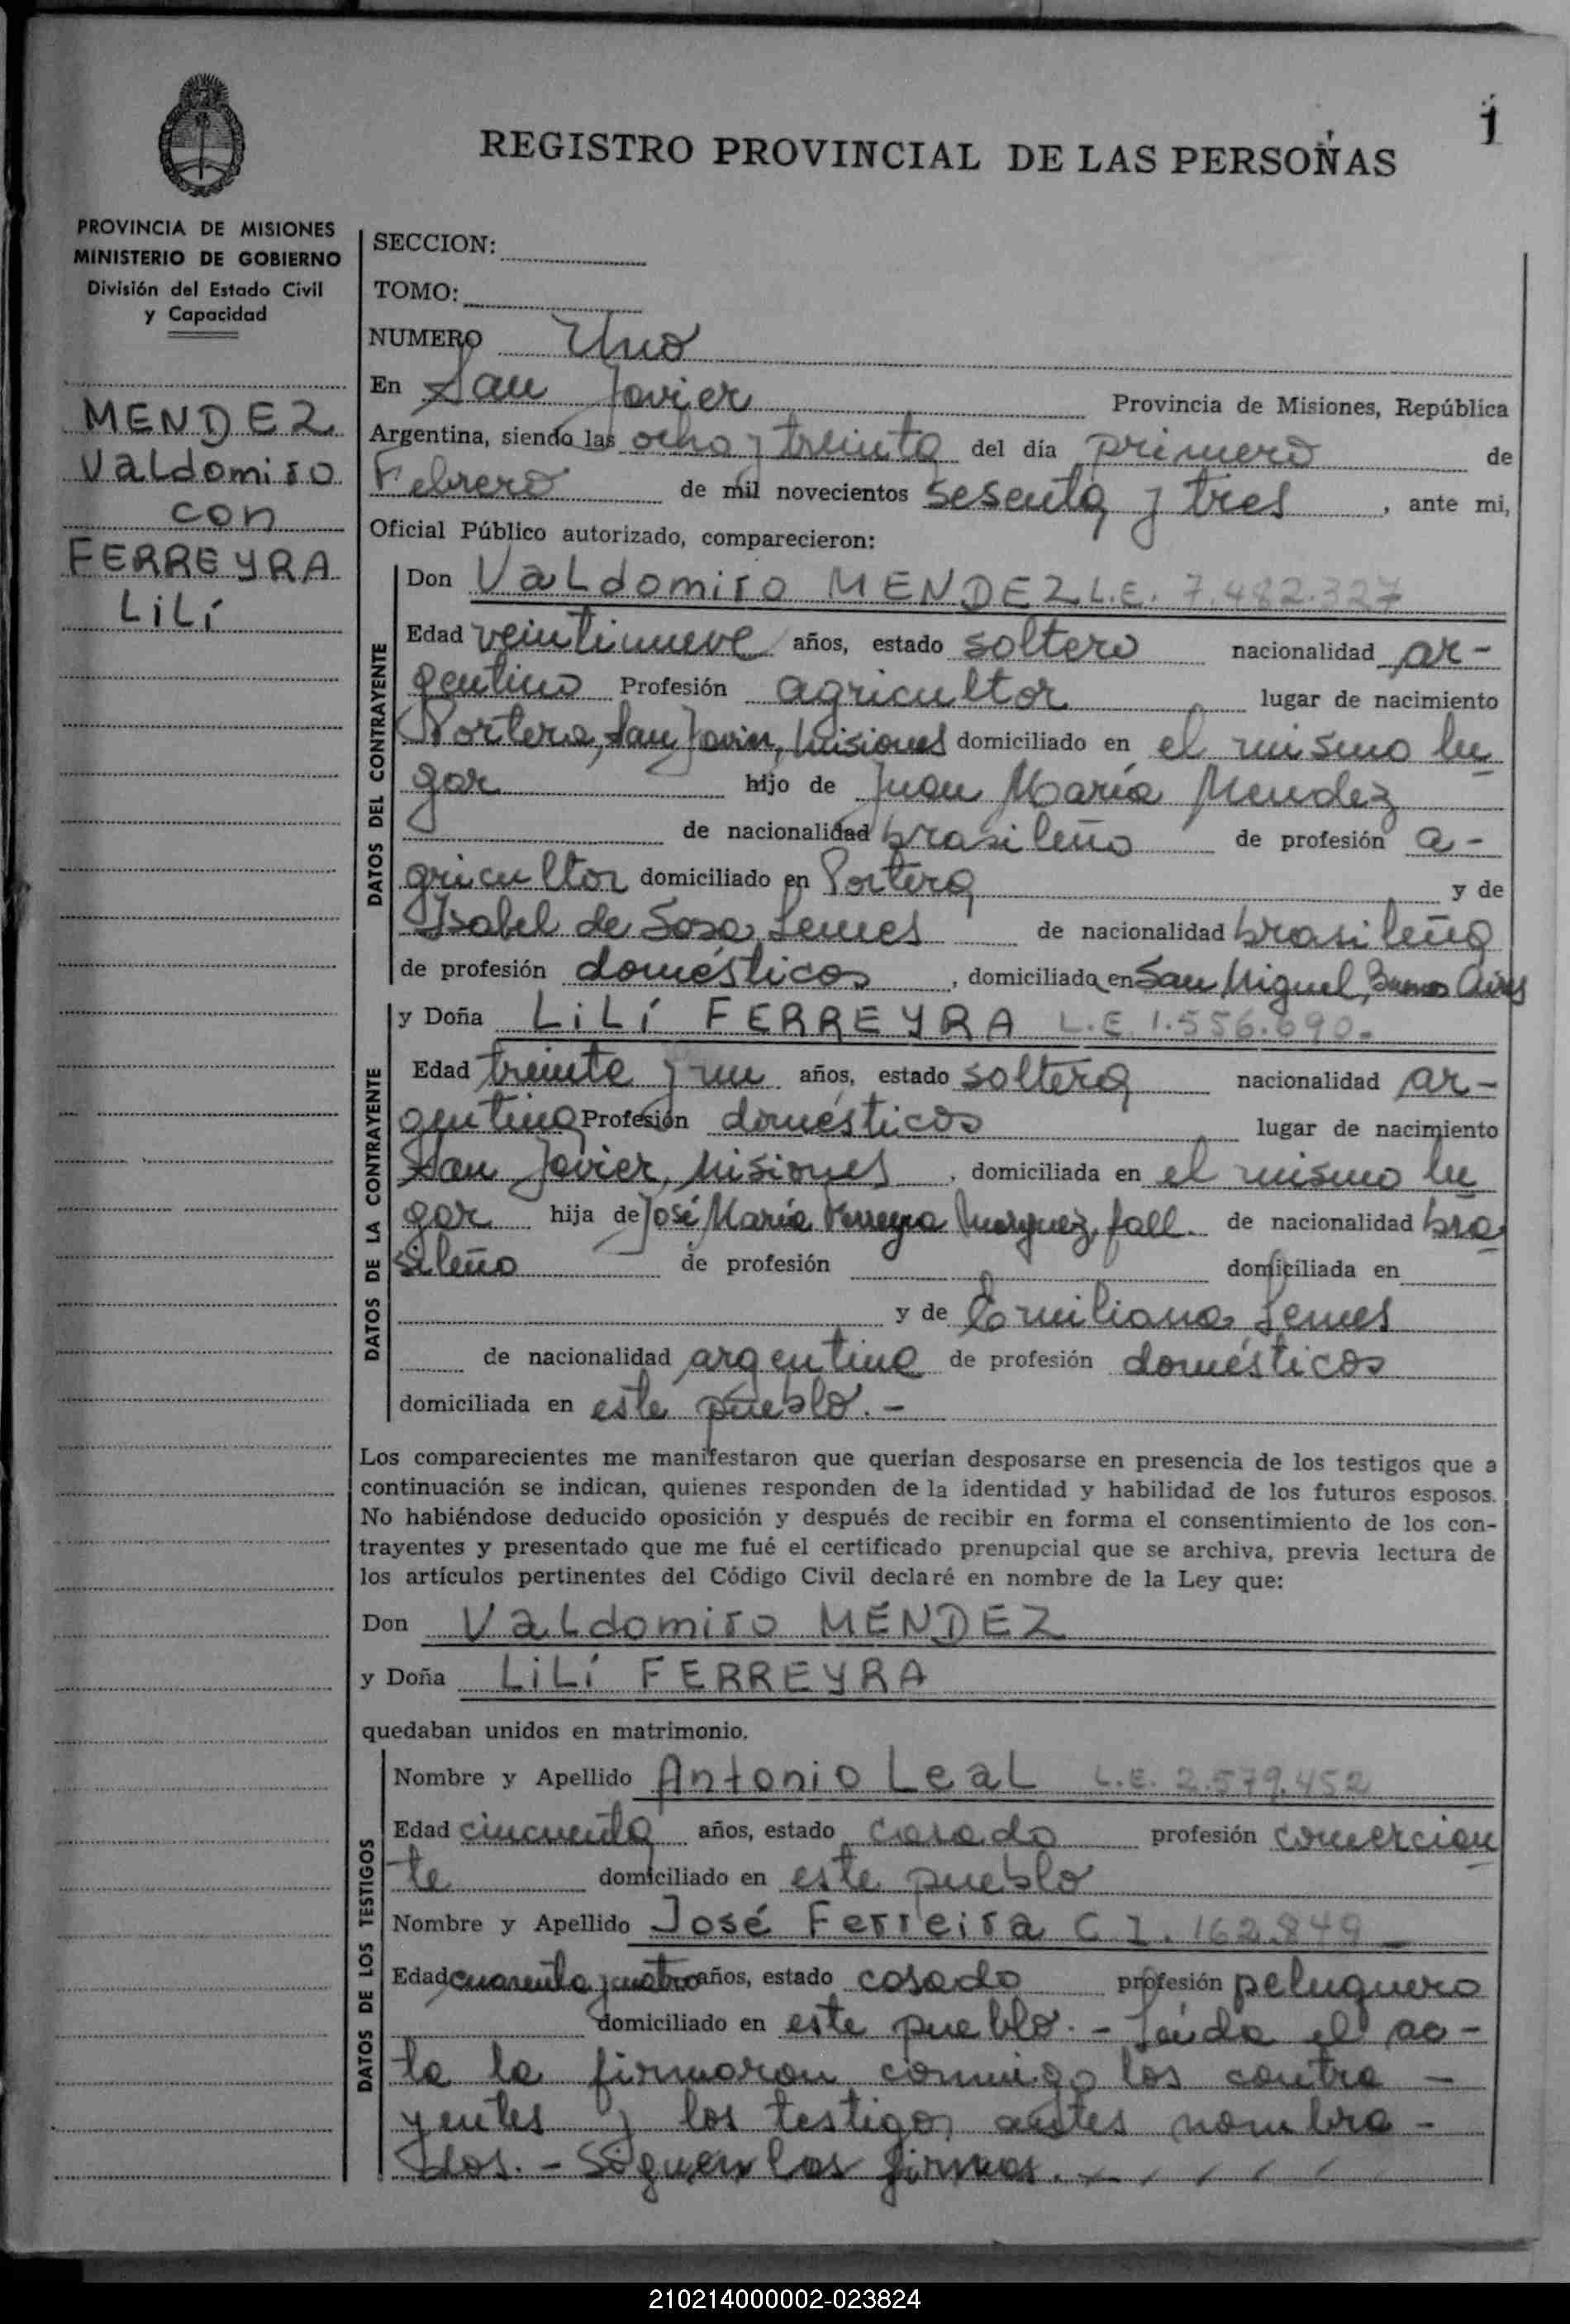 1
REGISTRO PROVINCIAL DE LAS PERSONAS
PROVINCIA DE MISIONES
MINISTERIO DE GOBIERNO
División del Estado Civil
y Capacidad
MENDEZ
Valdomiro
con
FERREYRA
LiLí
SECCION:
TOMO:
NUMERO Uno
En San Javier Provincia de Misiones, República
Argentina, siendo las ocho y treinta del día primero de
Febrero de mil novecientos sesenta y tres, ante mi,
Oficial Público autorizado, comparecieron:
DATOS DEL CONTRAYENTE
Don Valdomiro MENDEZ L.E. 7.482.327
Edad veintinueve años, estado soltero nacionalidad ar-
gentino Profesión agricultor lugar de nacimiento
Portera, San Javier, Misiones domiciliado en el mismo lu
gar hijo de Juan María Mendez
de nacionalidad brasileño de profesión a-
gricultor domiciliado en Portera y de
Isabel de Sosa Lemes de nacionalidad brasileña
de profesión domésticos, domiciliada en San Miguel, Buenos Aires
DATOS DE LA CONTRAYENTE
y Doña LiLí FERREYRA L.E. 1.556.690.
Edad treinta y un años, estado soltera nacionalidad ar-
gentina Profesión domésticos lugar de nacimiento
San Javier, Misiones, domiciliada en el mismo lu
gar hija de José María Ferreyra Marquez, fall. de nacionalidad bra
sileño de profesión domiciliada en
y de Emiliana Lemes
de nacionalidad argentina de profesión domésticos
domiciliada en este pueblo.-
Los comparecientes me manifestaron que querían desposarse en presencia de los testigos que a
continuación se indican, quienes responden de la identidad y habilidad de los futuros esposos.
No habiéndose deducido oposición y después de recibir en forma el consentimiento de los con-
trayentes y presentado que me fué el certificado prenupcial que se archiva, previa lectura de
los artículos pertinentes del Código Civil declaré en nombre de la Ley que:
Don Valdomiro MÉNDEZ
y Doña LiLí FERREYRA
quedaban unidos en matrimonio.
DATOS DE LOS TESTIGOS
Nombre y Apellido Antonio Leal L.E. 2.579.452
Edad cincuenta años, estado casado profesión comercian
te domiciliado en este pueblo
Nombre y Apellido José Ferreira C.I. 162.849
Edad cuarenta y cuatro años, estado casado profesión peluquero
domiciliado en este pueblo.- Leída el ac-
ta la firmaron conmigo los contra-
yentes y los testigos antes nombra-
dos.- Siguen las firmas.
210214000002-023824